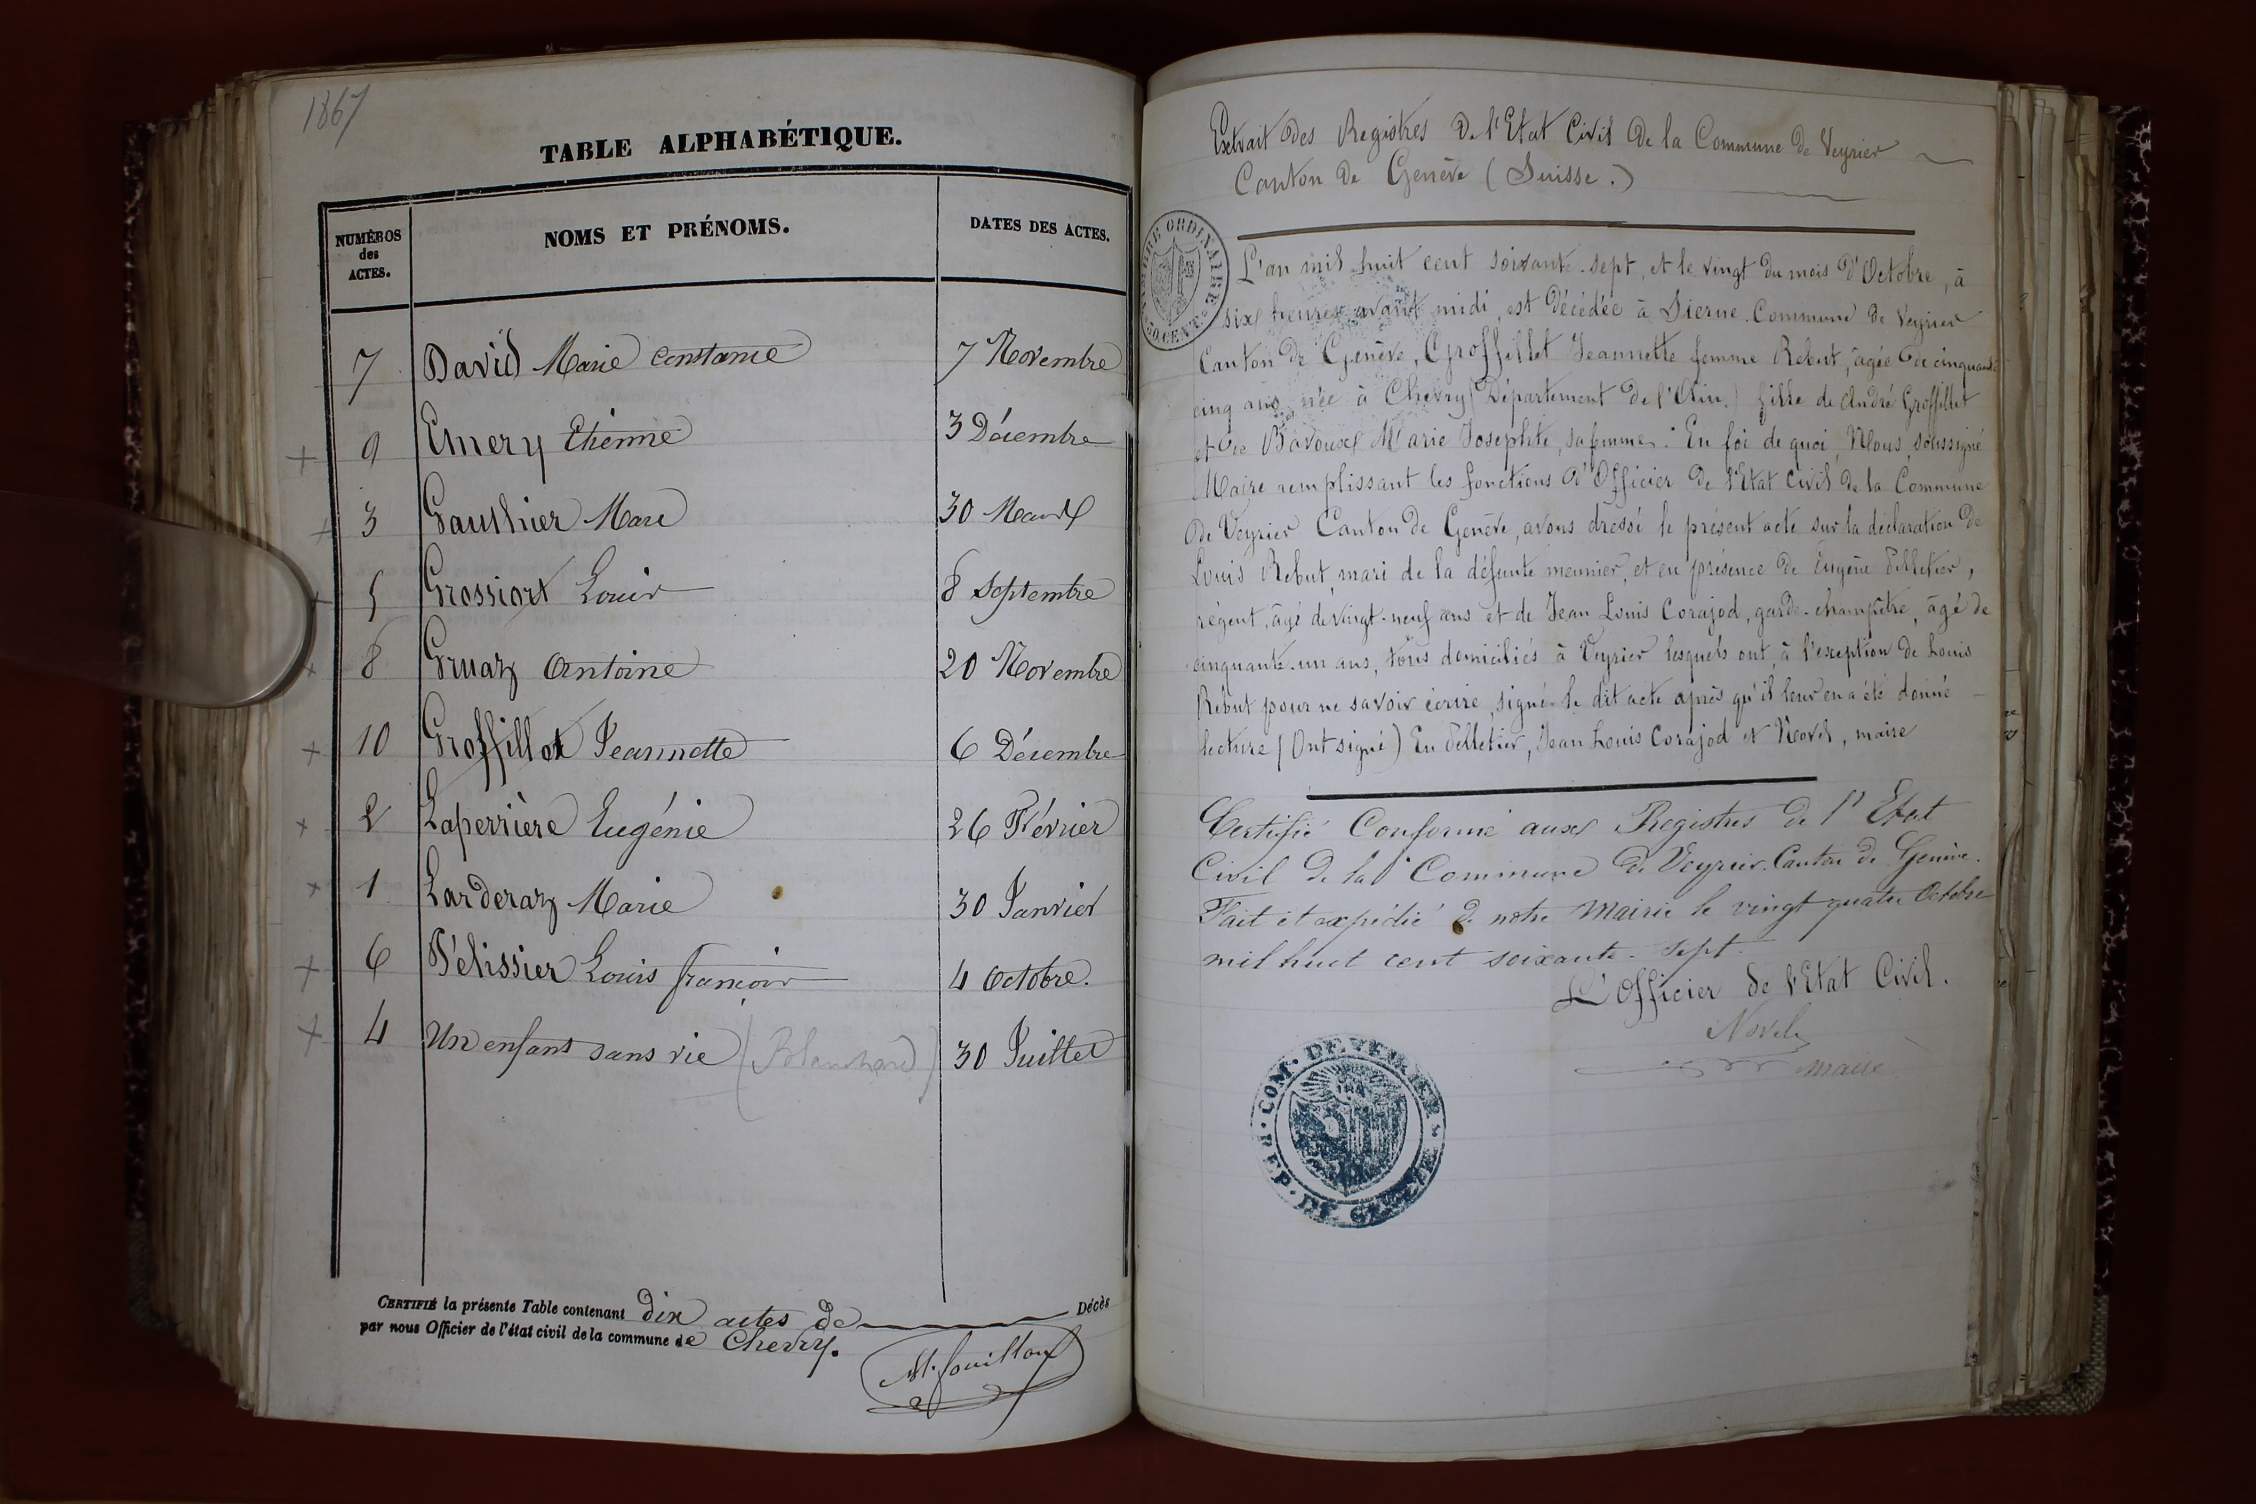 1867
TABLE ALPHABÉTIQUE.
NUMÉROS
des
ACTES.
NOMS ET PRÉNOMS.
DATES DES ACTES.
7 David Marie Constance 7 Novembre
9 Emery Etienne 3 Décembre
3 Gauthier Marc 30 Mars
5 Grossiort Louis 8 Septembre
8 Gruaz Antoine 20 Novembre
10 Groffillet Jeannette 6 Décembre
2 Laperrière Eugénie 26 Février
1 Larderaz Marie 30 Janvier
6 Pélissier Louis françois 4 Octobre.
4 Un enfant sans vie (Blanchard) 30 Juillet
CERTIFIÉ la présente Table contenant dix actes de Décès
par nous Officier de l'état civil de la commune de Chevry.
Extrait des Registres de l'Etat Civil de la Commune de Veyrier
Canton de Genève (Suisse.)
TIMBRE ORDINAIRE
50 CENT.
L'an mil huit cent soixante-sept, et le vingt du mois d'Octobre, à
six heures avant midi, est décédée à Sierne. Commune de Veyrier
Canton de Genève, Groffillet Jeannette femme Rebut, âgée de cinquante
cinq ans, née à Chevry (Département de l'Ain.) fille de André Groffillet
et de Bavoux Marie Josephte, sa femme. En foi de quoi, Nous, soussigné
Maire remplissant les fonctions d'Officier de l'Etat Civil de la Commune
de Veyrier Canton de Genève, avons dressé le présent acte sur la déclaration de
Louis Rebut mari de la défunte meunier, et en présence de Eugène Pelletier,
régent, âgé de vingt-neuf ans et de Jean Louis Corajod, garde-champêtre, âgé de
cinquante-un ans, tous domiciliés à Veyrier lesquels ont, à l'exception de Louis
Rebut pour ne savoir écrire, signé le dit acte après qu'il leur en a été donné
lecture (Ont signé) Eu Pelletier, Jean Louis Corajod et Novel, maire
Certifié Conforme aux Registres de l'Etat
Civil de la Commune de Veyrier. Canton de Genève.
Fait et expédié de notre Mairie le vingt quatre Octobre
mil huit cent soixante-sept.
L'Officier de l'Etat Civil.
Novel
maire
COM. DE VEYRIER
REP. DE GENEVE